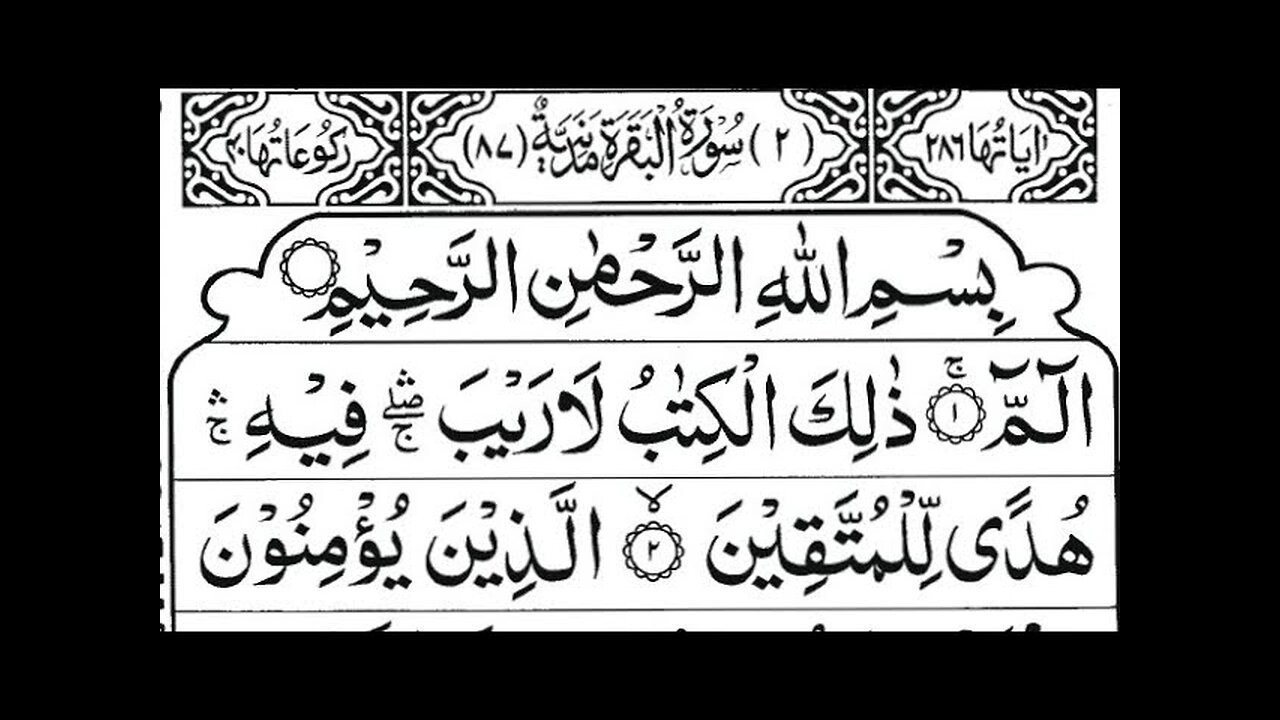 اٰیَاتُهَا ٢٨٦ (٢) سُوْرَةُ الْبَقَرَةِ مَدَنِیَّةٌ (٨٧) رُكُوْعَاتُهَا ٤٠
بِسْمِ اللّٰهِ الرَّحْمٰنِ الرَّحِیْمِ
الٓمّٓ ۚ ﴿١﴾ ذٰلِكَ الْكِتٰبُ لَا رَیْبَ ۛۖۚ فِیْهِ ۛۚ
هُدًی لِّلْمُتَّقِیْنَ ۙ ﴿٢﴾ الَّذِیْنَ یُؤْمِنُوْنَ